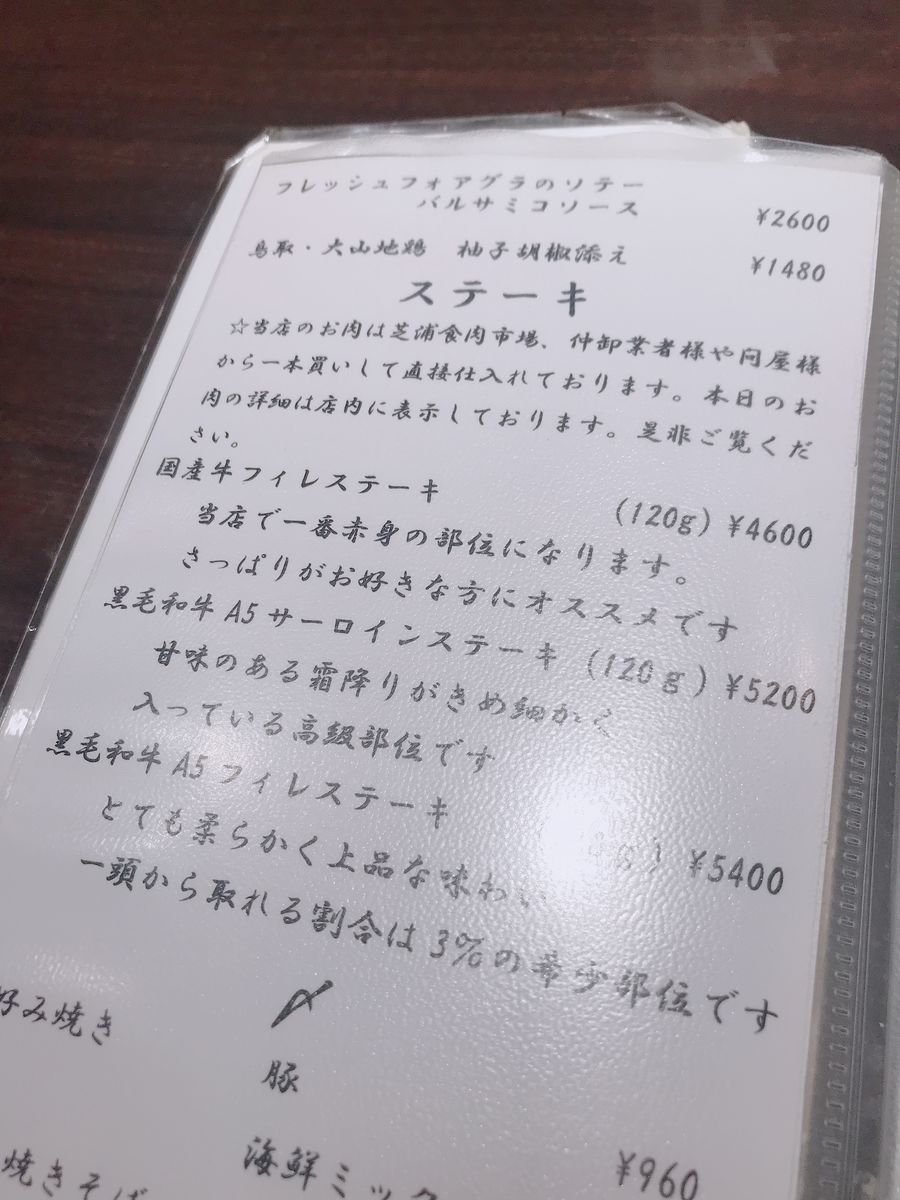 フレッシュフォアグラのソテー
バルサミコソース ¥2600
鳥取・大山地鶏 柚子胡椒添え ¥1480
ステーキ
☆当店のお肉は芝浦食肉市場、仲卸業者様や問屋様
から一本買いして直接仕入れております。本日のお
肉の詳細は店内に表示しております。是非ご覧くだ
さい。
国産牛フィレステーキ (120g) ¥4600
当店で一番赤身の部位になります。
さっぱりがお好きな方にオススメです
黒毛和牛A5サーロインステーキ (120g) ¥5200
甘味のある霜降りがきめ細かく
入っている高級部位です
黒毛和牛A5フィレステーキ g) ¥5400
とても柔らかく上品な味わい
一頭から取れる割合は3%の希少部位です
〆
好み焼き 豚
焼きそば 海鮮ミック ¥960